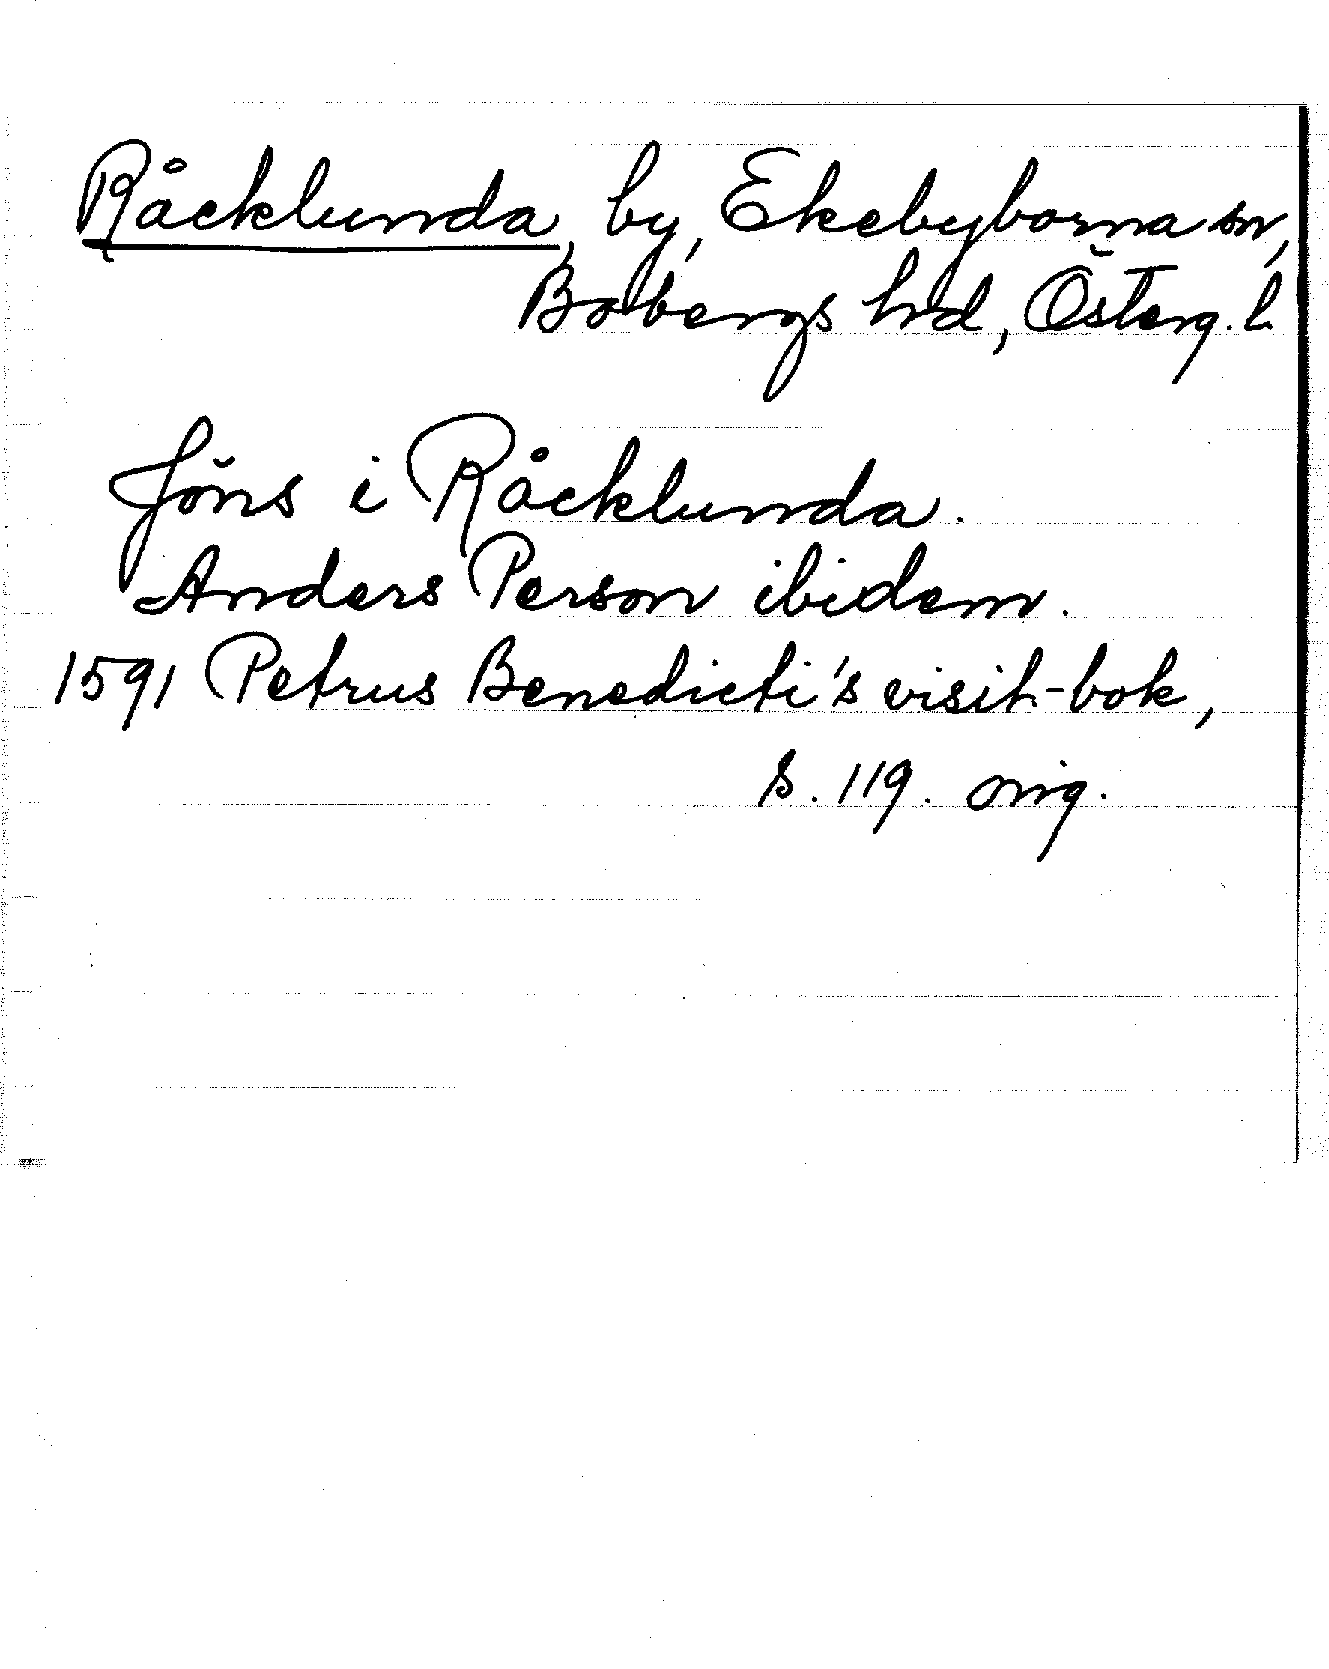 Råcklunda, by, Ekebyborna sn,
Bobergs hd, Österg. l.
Jöns i Råcklunda.
Anders Person ibidem.
1591 Petrus Benedicti's visit-bok,
s. 119. orig.